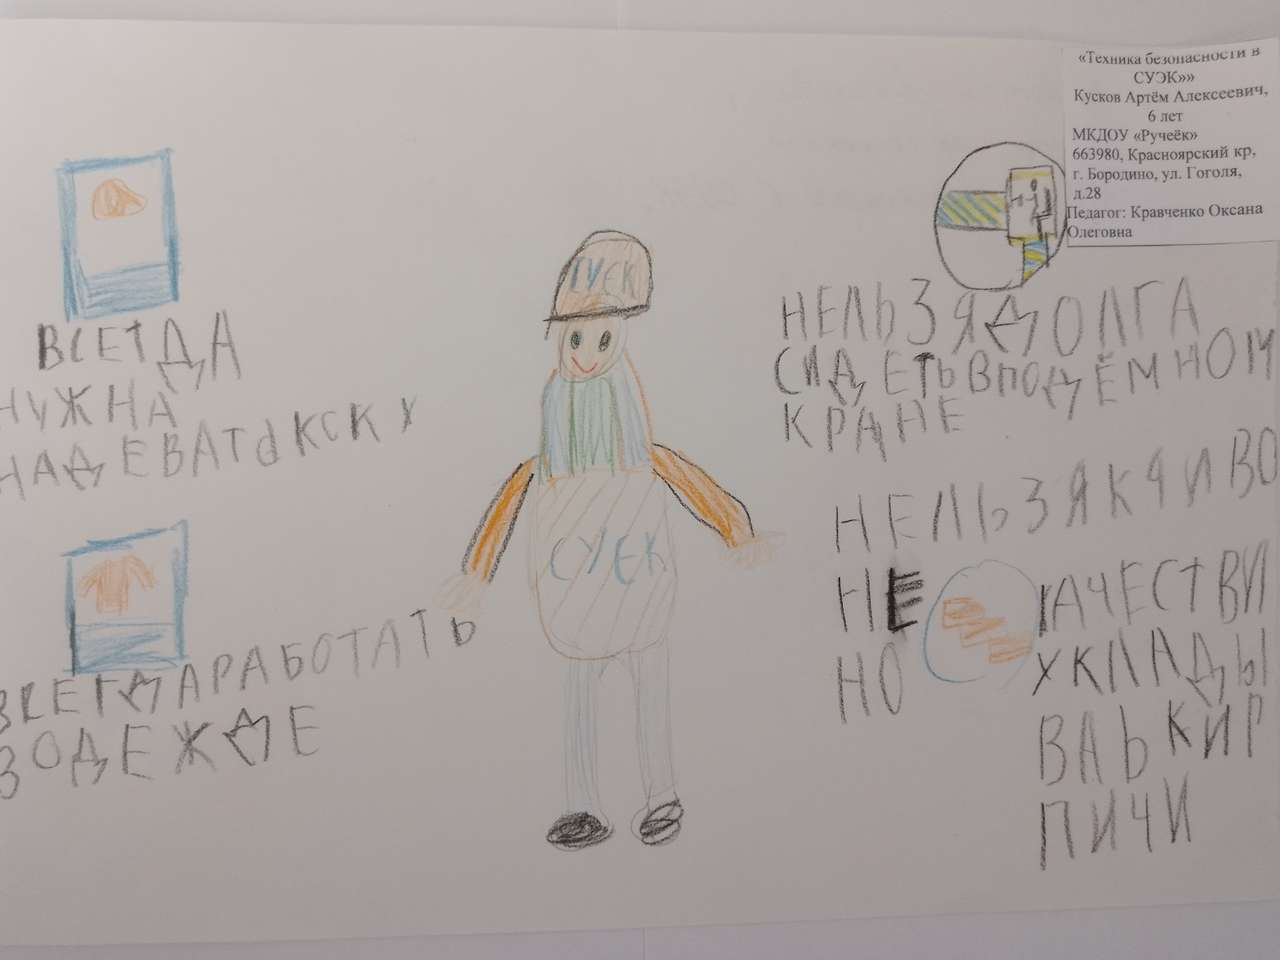 «Техника безопасности в
СУЭК»»
Кусков Артём Алексеевич,
6 лет
МКДОУ «Ручеёк»
663980, Красноярский кр,
г. Бородино, ул. Гоголя,
д.28
Педагог: Кравченко Оксана
Олеговна
ВСЕГДА
НУЖНА
НАДЕВАТЬ КСКУ
ВСЕГДА РАБОТАТЬ
ВОДЕЖДЕ
СУЕК
СУЕК
НЕЛЬЗЯ ДОЛГА
СИДЕТЬ В ПОДЁМНОМ
КРАНЕ
НЕЛЬЗЯ КЧИВО
НЕ КАЧЕСТВИ
НО УКЛАДЫ
ВАЬ КИР
ПИЧИ